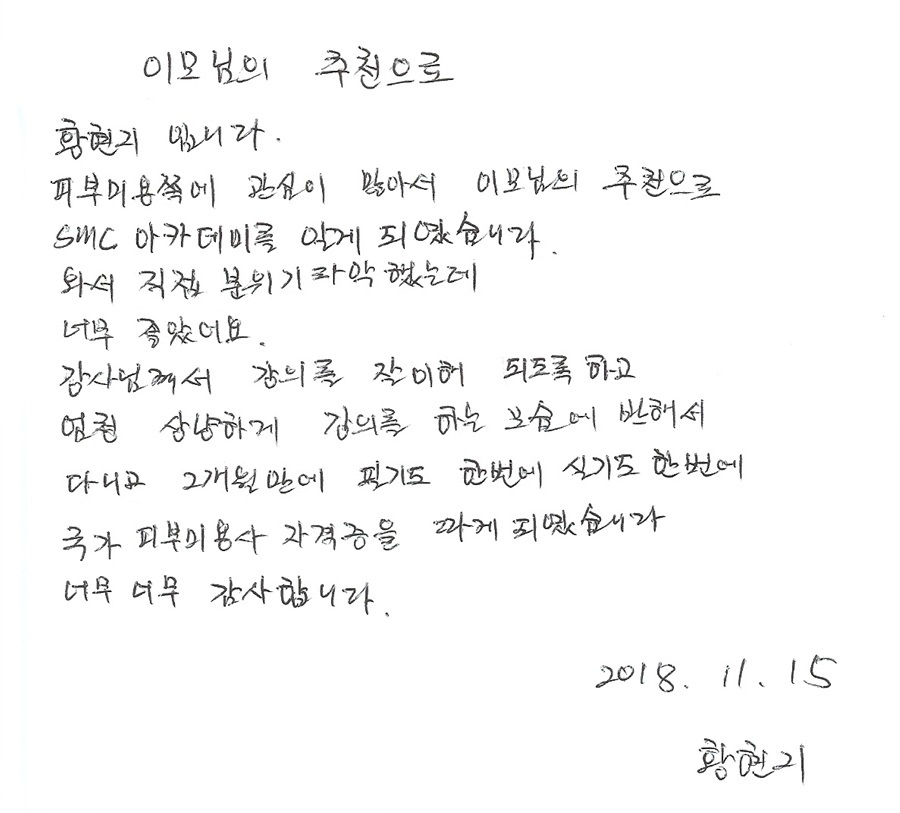 이모님의 추천으로
황현지 입니다.
피부미용쪽에 관심이 많아서 이모님의 추천으로
SMC 아카데미를 알게 되였습니다.
와서 직접 분위기파악했는데
너무 좋았어요.
강사님께서 강의를 잘이해 되도록하고
엄청 상냥하게 강의를 하는 모습에 반해서
다니고 2개월만에 필기도 한번에 실기도 한번에
국가 피부미용사 자격증을 따게되였습니다
너무너무 감사합니다.
2018. 11. 15
황현지